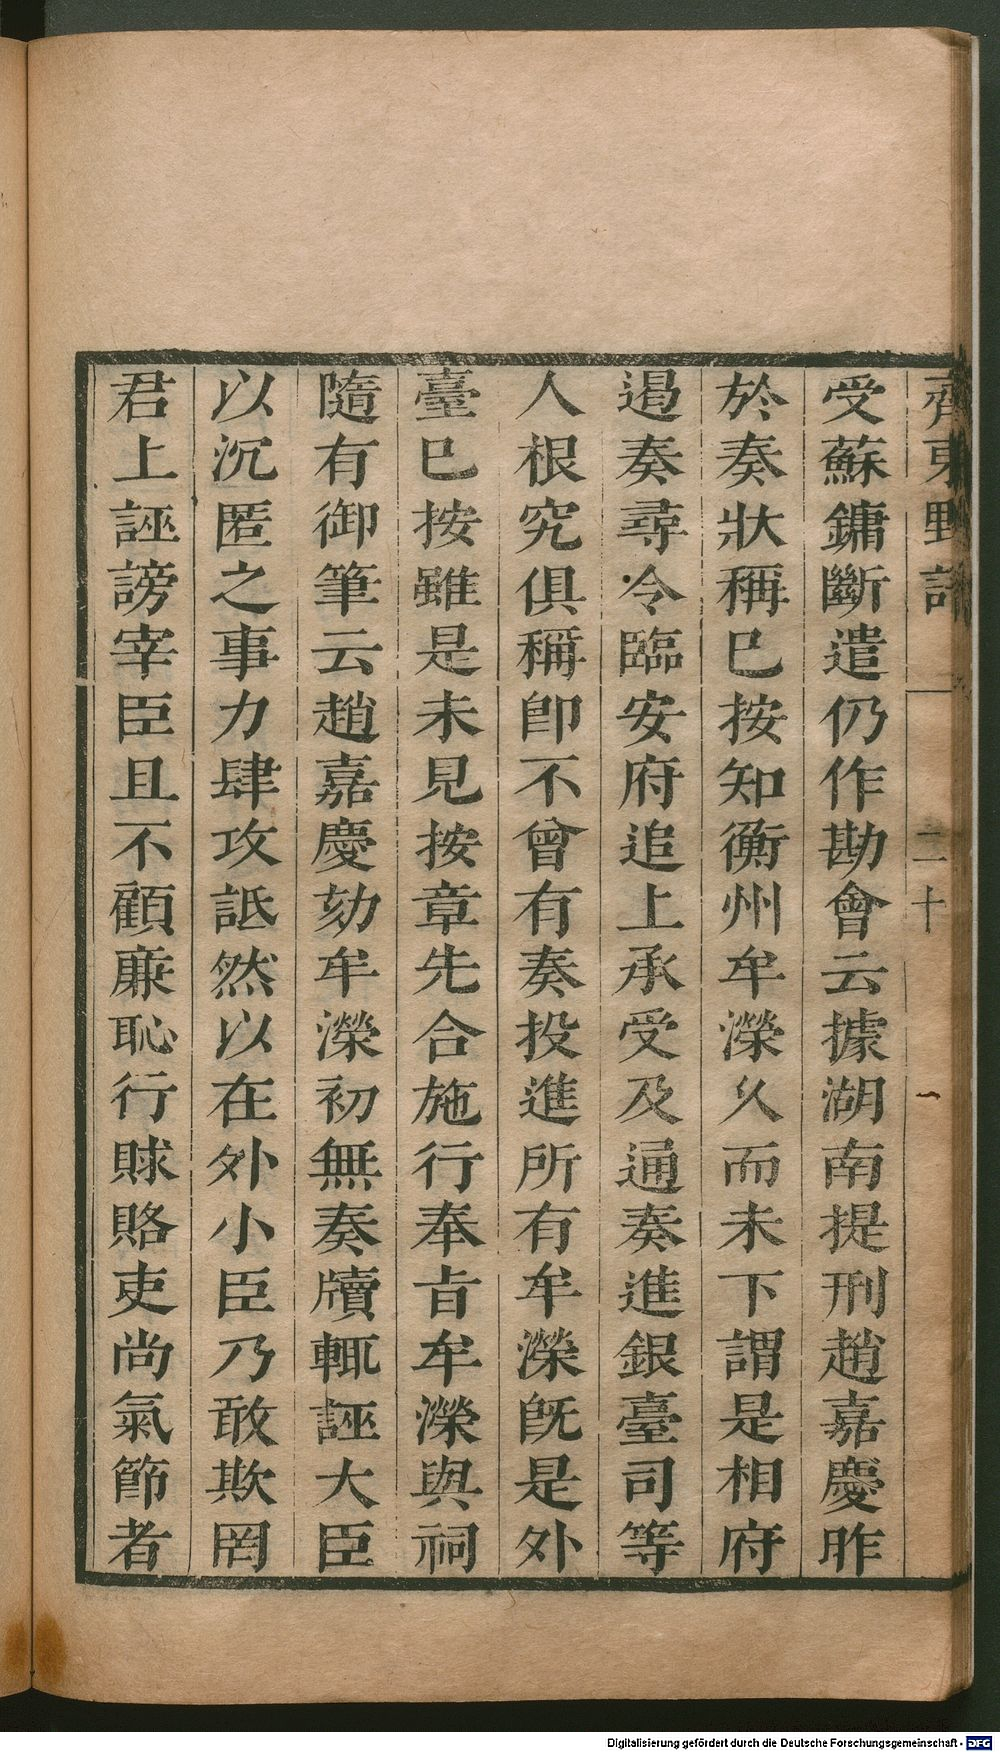 齊東野語 二十 一
受蘇鏞斷遣仍作勘會云據湖南提刑趙嘉慶昨
於奏狀稱已按知衡州牟濚久而未下謂是相府
遏奏尋令臨安府追上承受及通奏進銀臺司等
人根究俱稱卽不曾有奏投進所有牟濚旣是外
臺已按雖是未見按章先合施行奉㫖牟濚與祠
隨有御筆云趙嘉慶劾牟濚初無奏牘輒誣大臣
以沉匿之事力肆攻詆然以在外小臣乃敢欺罔
君上誣謗宰臣且不顧廉恥行賕賂吏尚氣節者
Digitalisierung gefördert durch die Deutsche Forschungsgemeinschaft - DFG